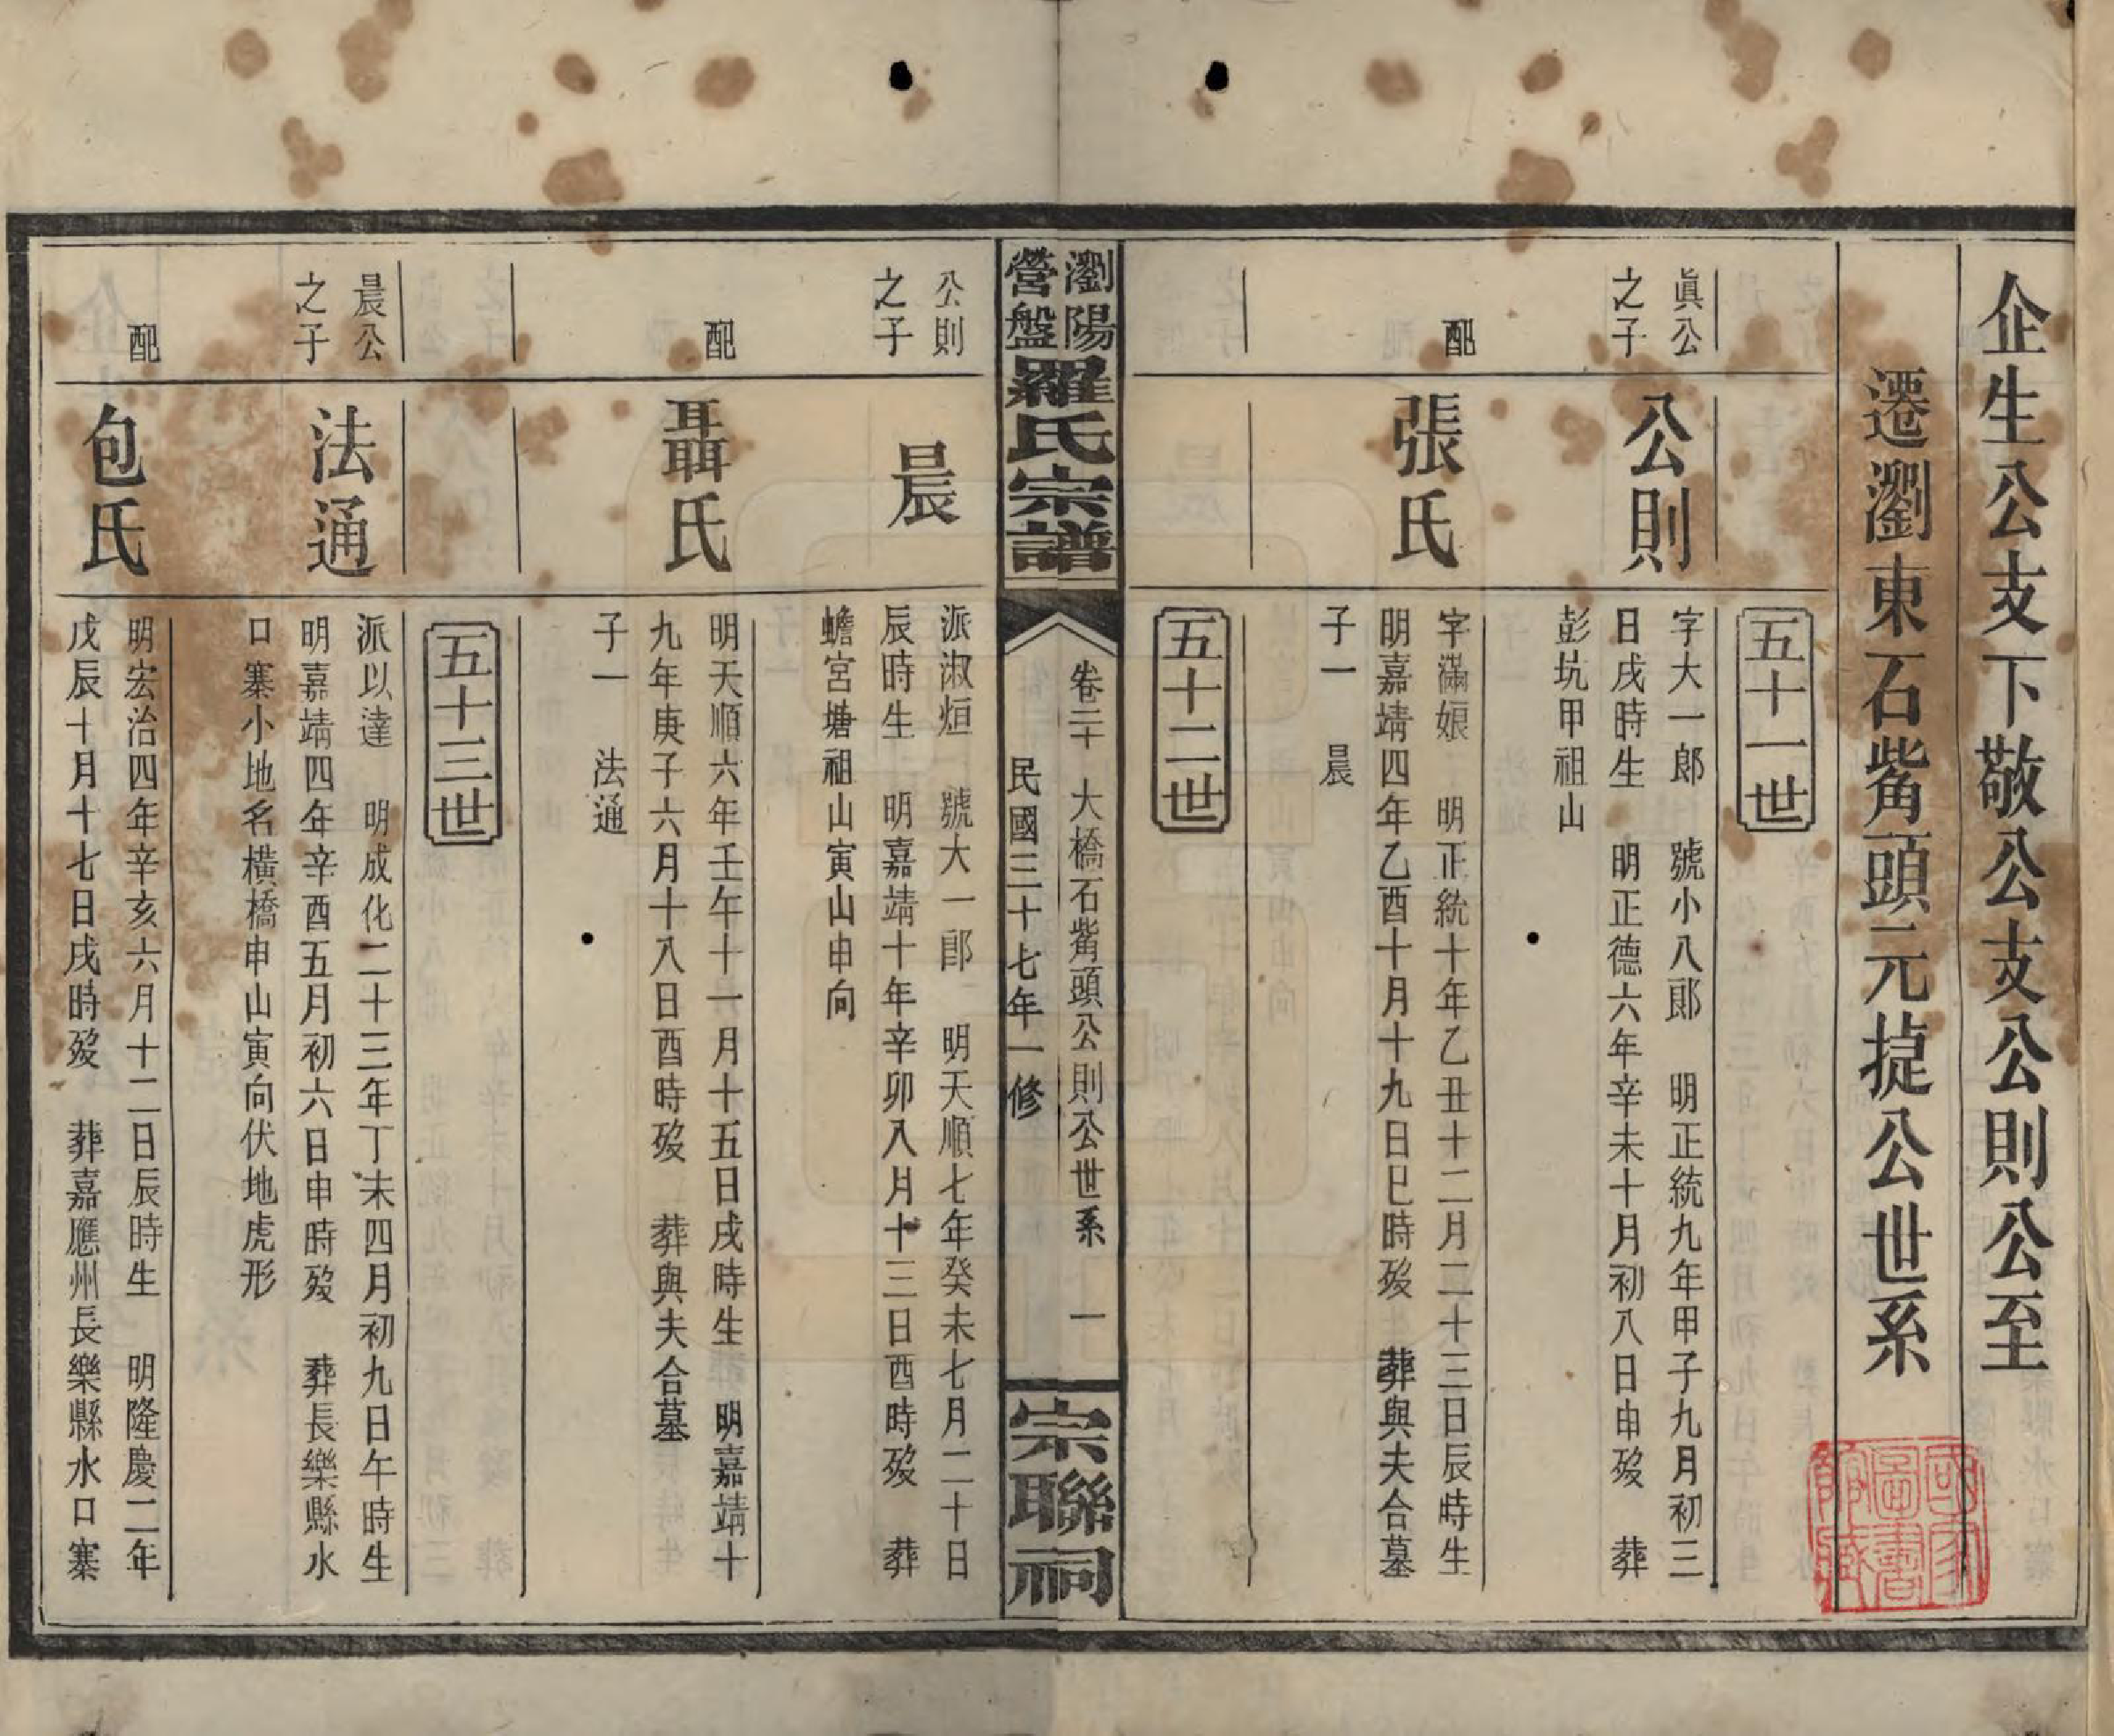 企生公支下敬公支公則公至
遷瀏東石觜頭元㨗公世系
五十一世
眞公
之子
公則
字大一郎 號小八郎 明正統九年甲子九月初三
日戌時生 明正德六年辛未十月初八日申歿 葬
彭坑甲祖山
配
張氏
字滿娘 明正統十年乙丑十二月二十三日辰時生
明嘉靖四年乙酉十月十九日巳時歿 葬與夫合墓
子一 晨
五十二世
瀏陽
營盤
羅氏宗譜
卷二十 大橋石觜頭公則公世系 一
民國三十七年一修
宗聯祠
公則
之子
晨
派淑烜 號大一郎 明天順七年癸未七月二十日
辰時生 明嘉靖十年辛卯八月十三日酉時歿 葬
蟾宮塘祖山寅山申向
配
聶氏
明天順六年壬午十一月十五日戌時生 明嘉靖十
九年庚子六月十八日酉時歿 葬與夫合墓
子一 法通
五十三世
晨公
之子
法通
派以達 明成化二十三年丁未四月初九日午時生
明嘉靖四年辛酉五月初六日申時歿 葬長樂縣水
口寨小地名橫橋申山寅向伏地虎形
配
包氏
明宏治四年辛亥六月十二日辰時生 明隆慶二年
戊辰十月十七日戌時歿 葬嘉應州長樂縣水口寨
國家
圖書
館藏